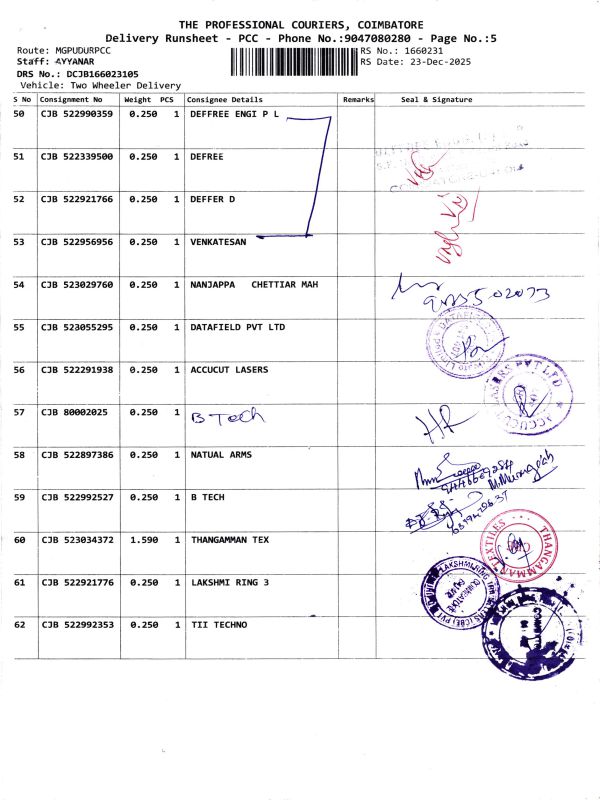 THE PROFESSIONAL COURIERS, COIMBATORE
Delivery Runsheet - PCC - Phone No.:9047080280 - Page No.:5
Route: MGPUDURPCC RS No.: 1660231
Staff: AYYANAR RS Date: 23-Dec-2025
DRS No.: DCJB166023105
Vehicle: Two Wheeler Delivery
S No Consignment No Weight PCS Consignee Details Remarks Seal & Signature
50 CJB 522990359 0.250 1 DEFFREE ENGI P L
51 CJB 522339500 0.250 1 DEFREE
52 CJB 522921766 0.250 1 DEFFER D
53 CJB 522956956 0.250 1 VENKATESAN
54 CJB 523029760 0.250 1 NANJAPPA CHETTIAR MAH
55 CJB 523055295 0.250 1 DATAFIELD PVT LTD
56 CJB 522291938 0.250 1 ACCUCUT LASERS
57 CJB 80002025 0.250 1 B Tech
58 CJB 522897386 0.250 1 NATUAL ARMS
59 CJB 522992527 0.250 1 B TECH
60 CJB 523034372 1.590 1 THANGAMMAN TEX
THANGAMMAN TEXTILES
61 CJB 522921776 0.250 1 LAKSHMI RING 3
62 CJB 522992353 0.250 1 TII TECHNO